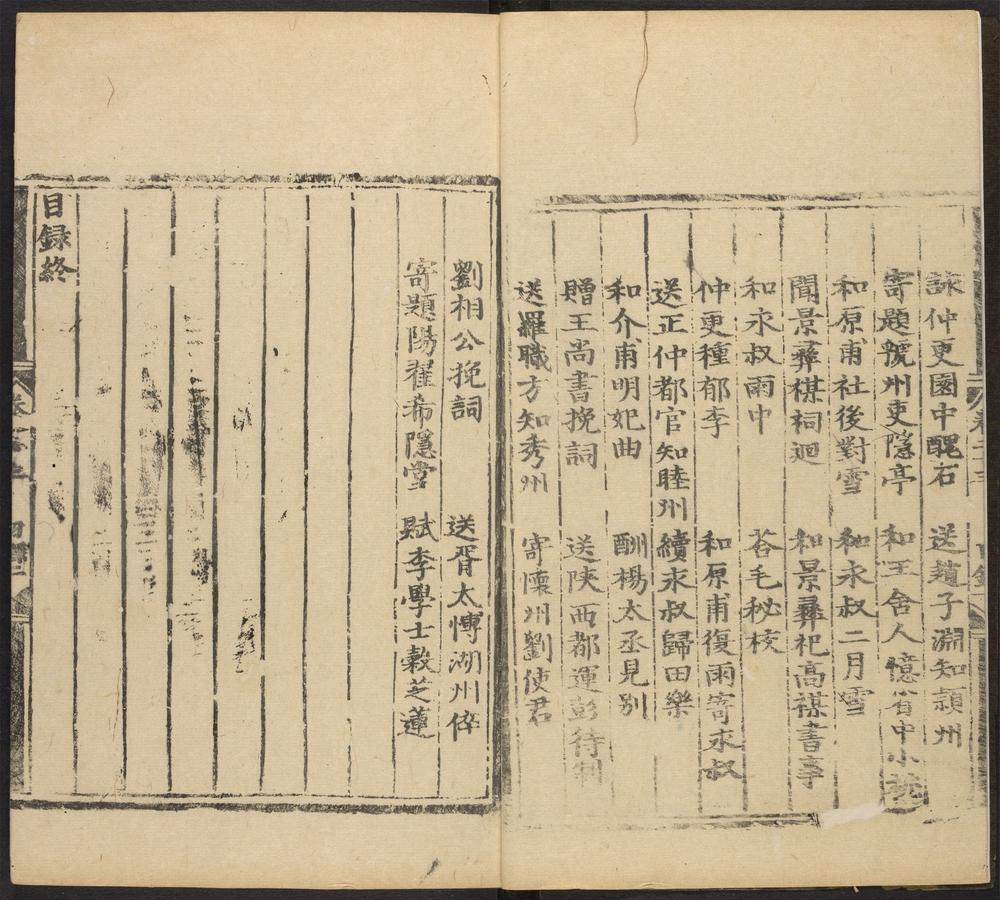 詠仲更園中醜石　送趙子淵知潁州
寄題虢州吏隱亭　和王舍人憶省中小桃
和原甫社後對雪　和永叔二月雪
聞景彝禖祠迴　和景彝祀高禖書事
和永叔雨中　荅毛秘校
仲更種郁李　和原甫復雨寄永叔
送正仲都官知睦州　續永叔歸田樂
和介甫明妃曲　酬楊太丞見別
贈王尚書挽詞　送陝西都運彭待制
送羅職方知秀州　寄懷州劉使君
劉相公挽詞　送胥太博湖州倅
寄題陽翟希隱堂　賦李學士穀芝蓮
目録終